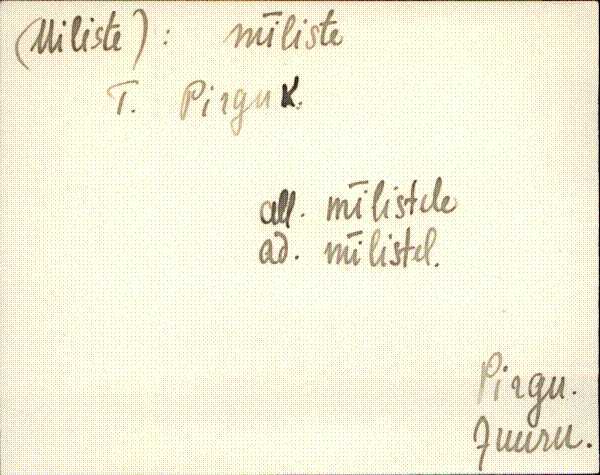 (Miliste): mīliste
T. Pirgu K.
all. mīlistele
ad. mīlistel.
Pirgu.
Juuru.